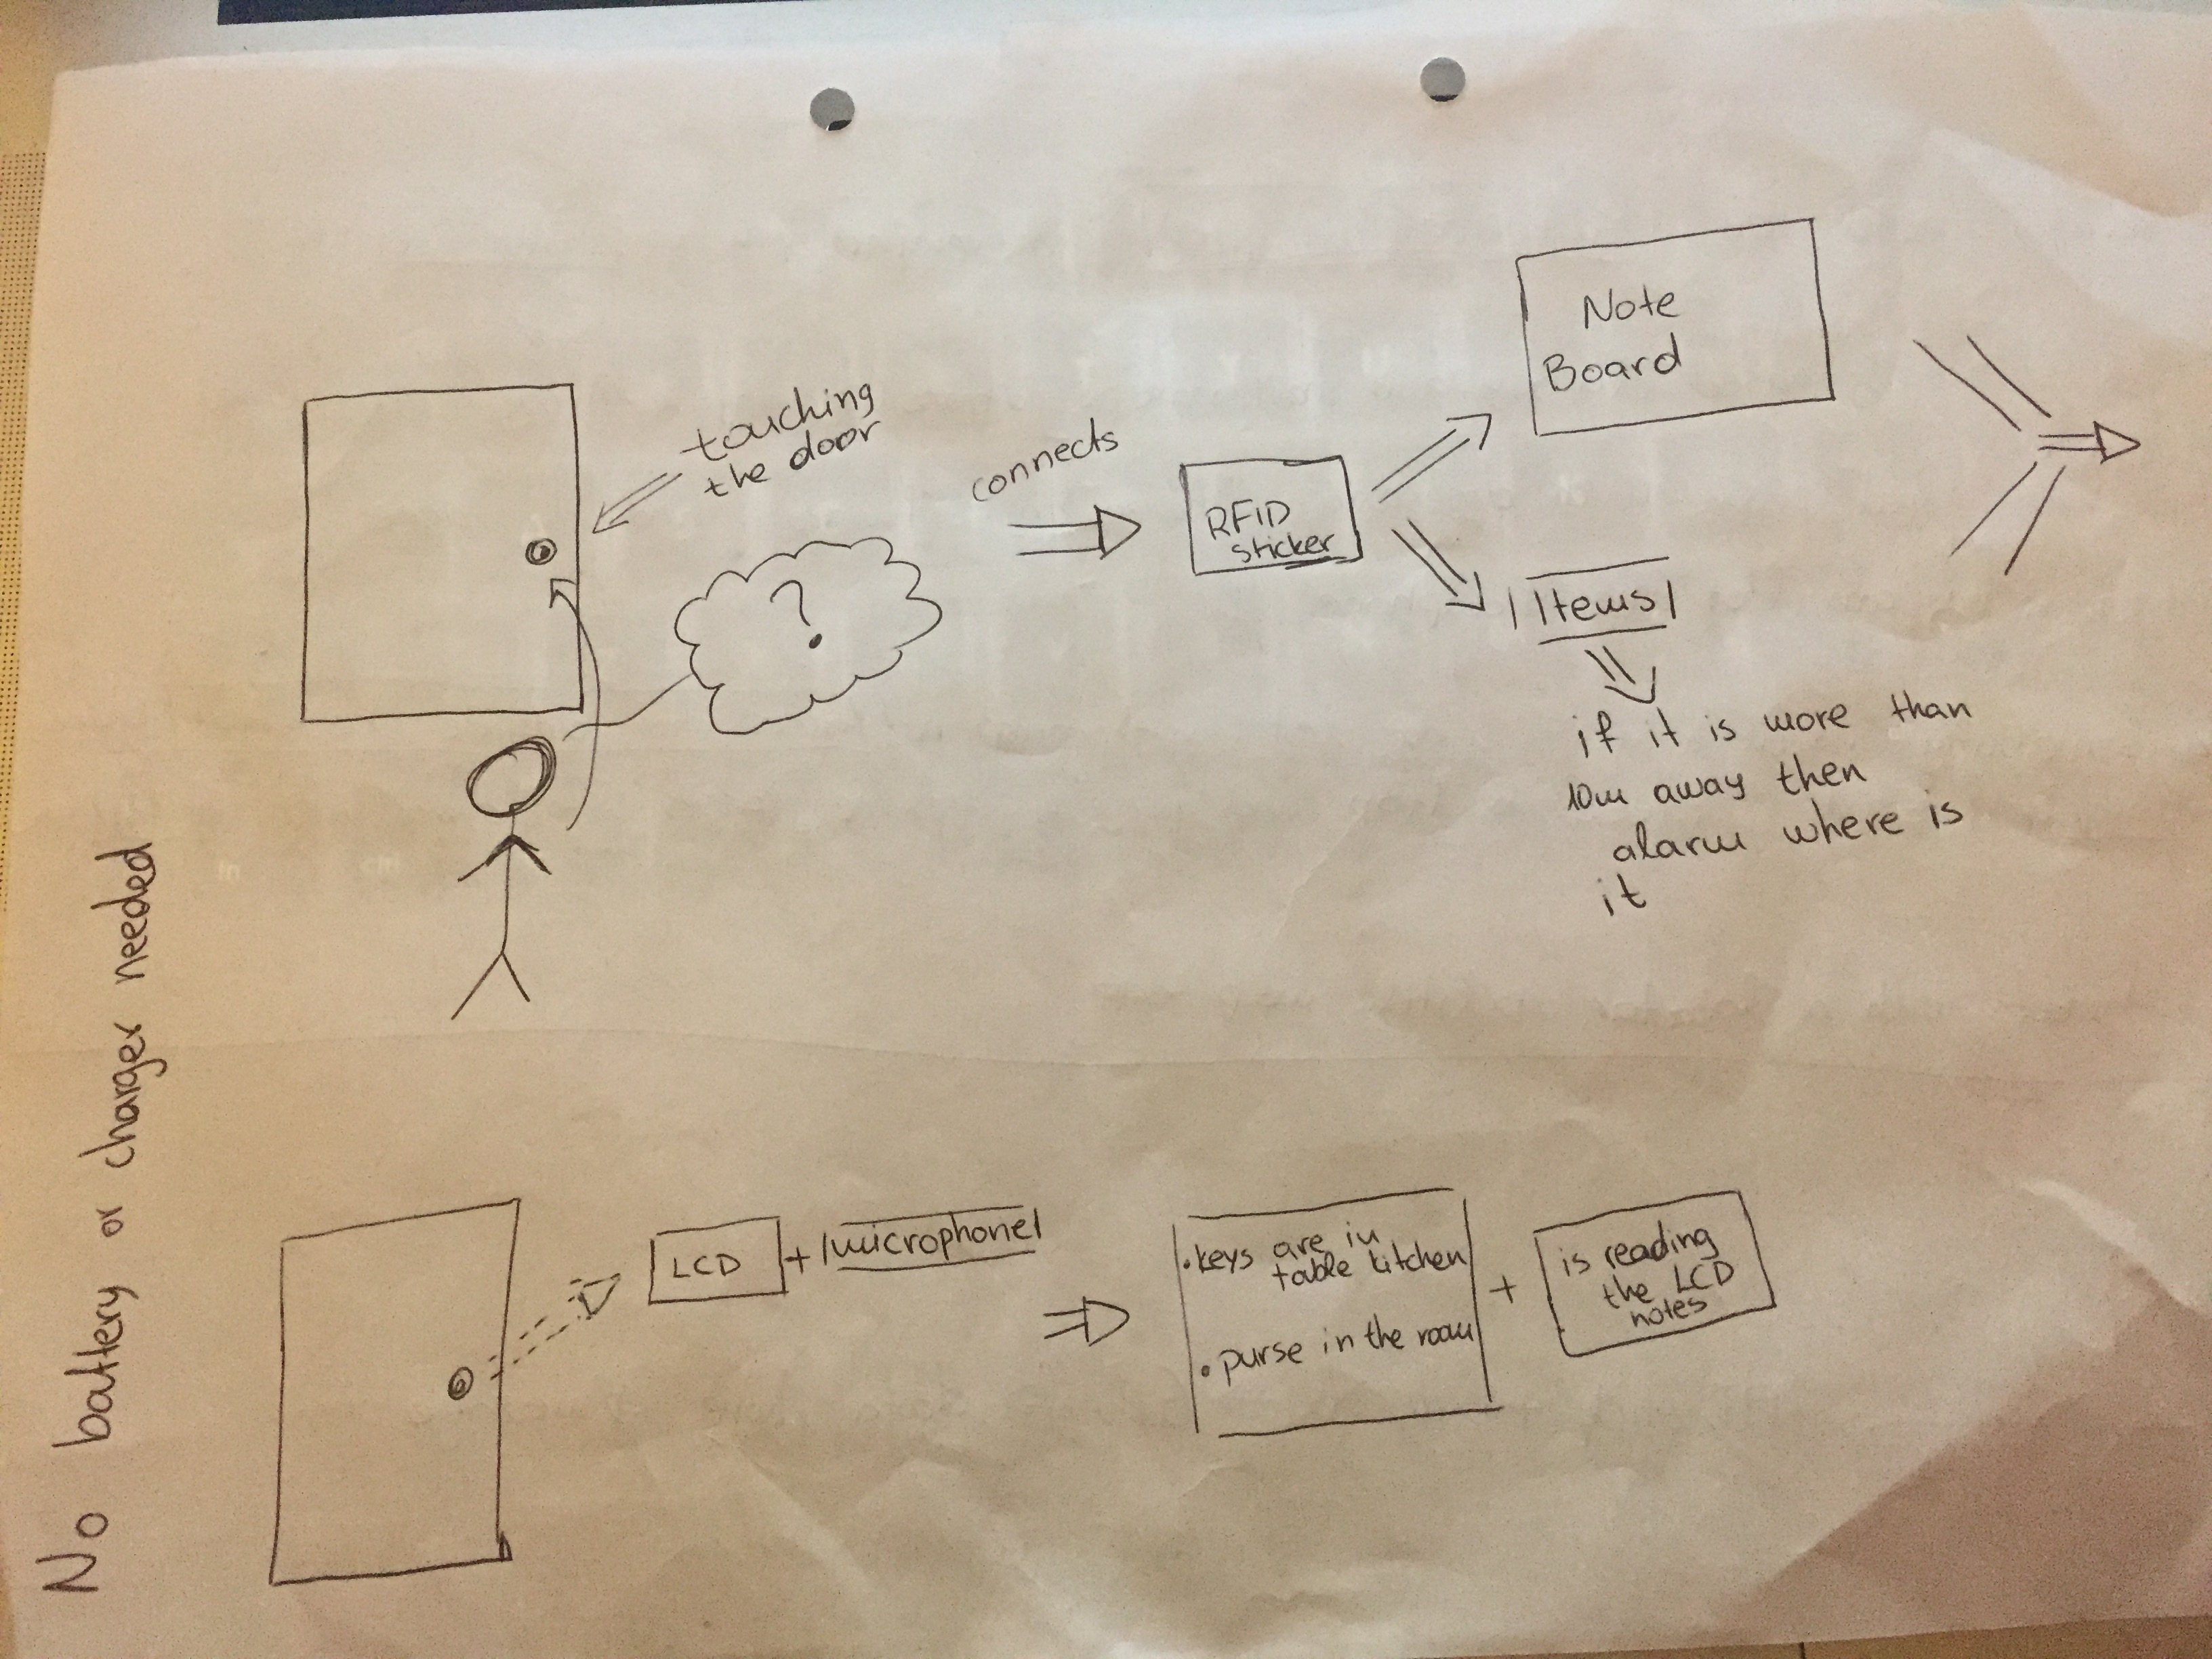 No battery or charger needed
touching
the door
?
connects
RFID
sticker
Note
Board
Items
if it is more than
10m away then
alarm where is
it
LCD
+ microphone
• keys are in
table kitchen
• purse in the room
+
is reading
the LCD
notes